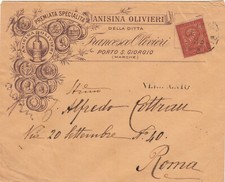 PREMIATA SPECIALITÀ
ANISINA OLIVIERI
DELLA DITTA
Francesco Olivieri
PORTO S. GIORGIO
(MARCHE)
Alfredo Cottrau
Via 20 Settembre N. 40.
Roma